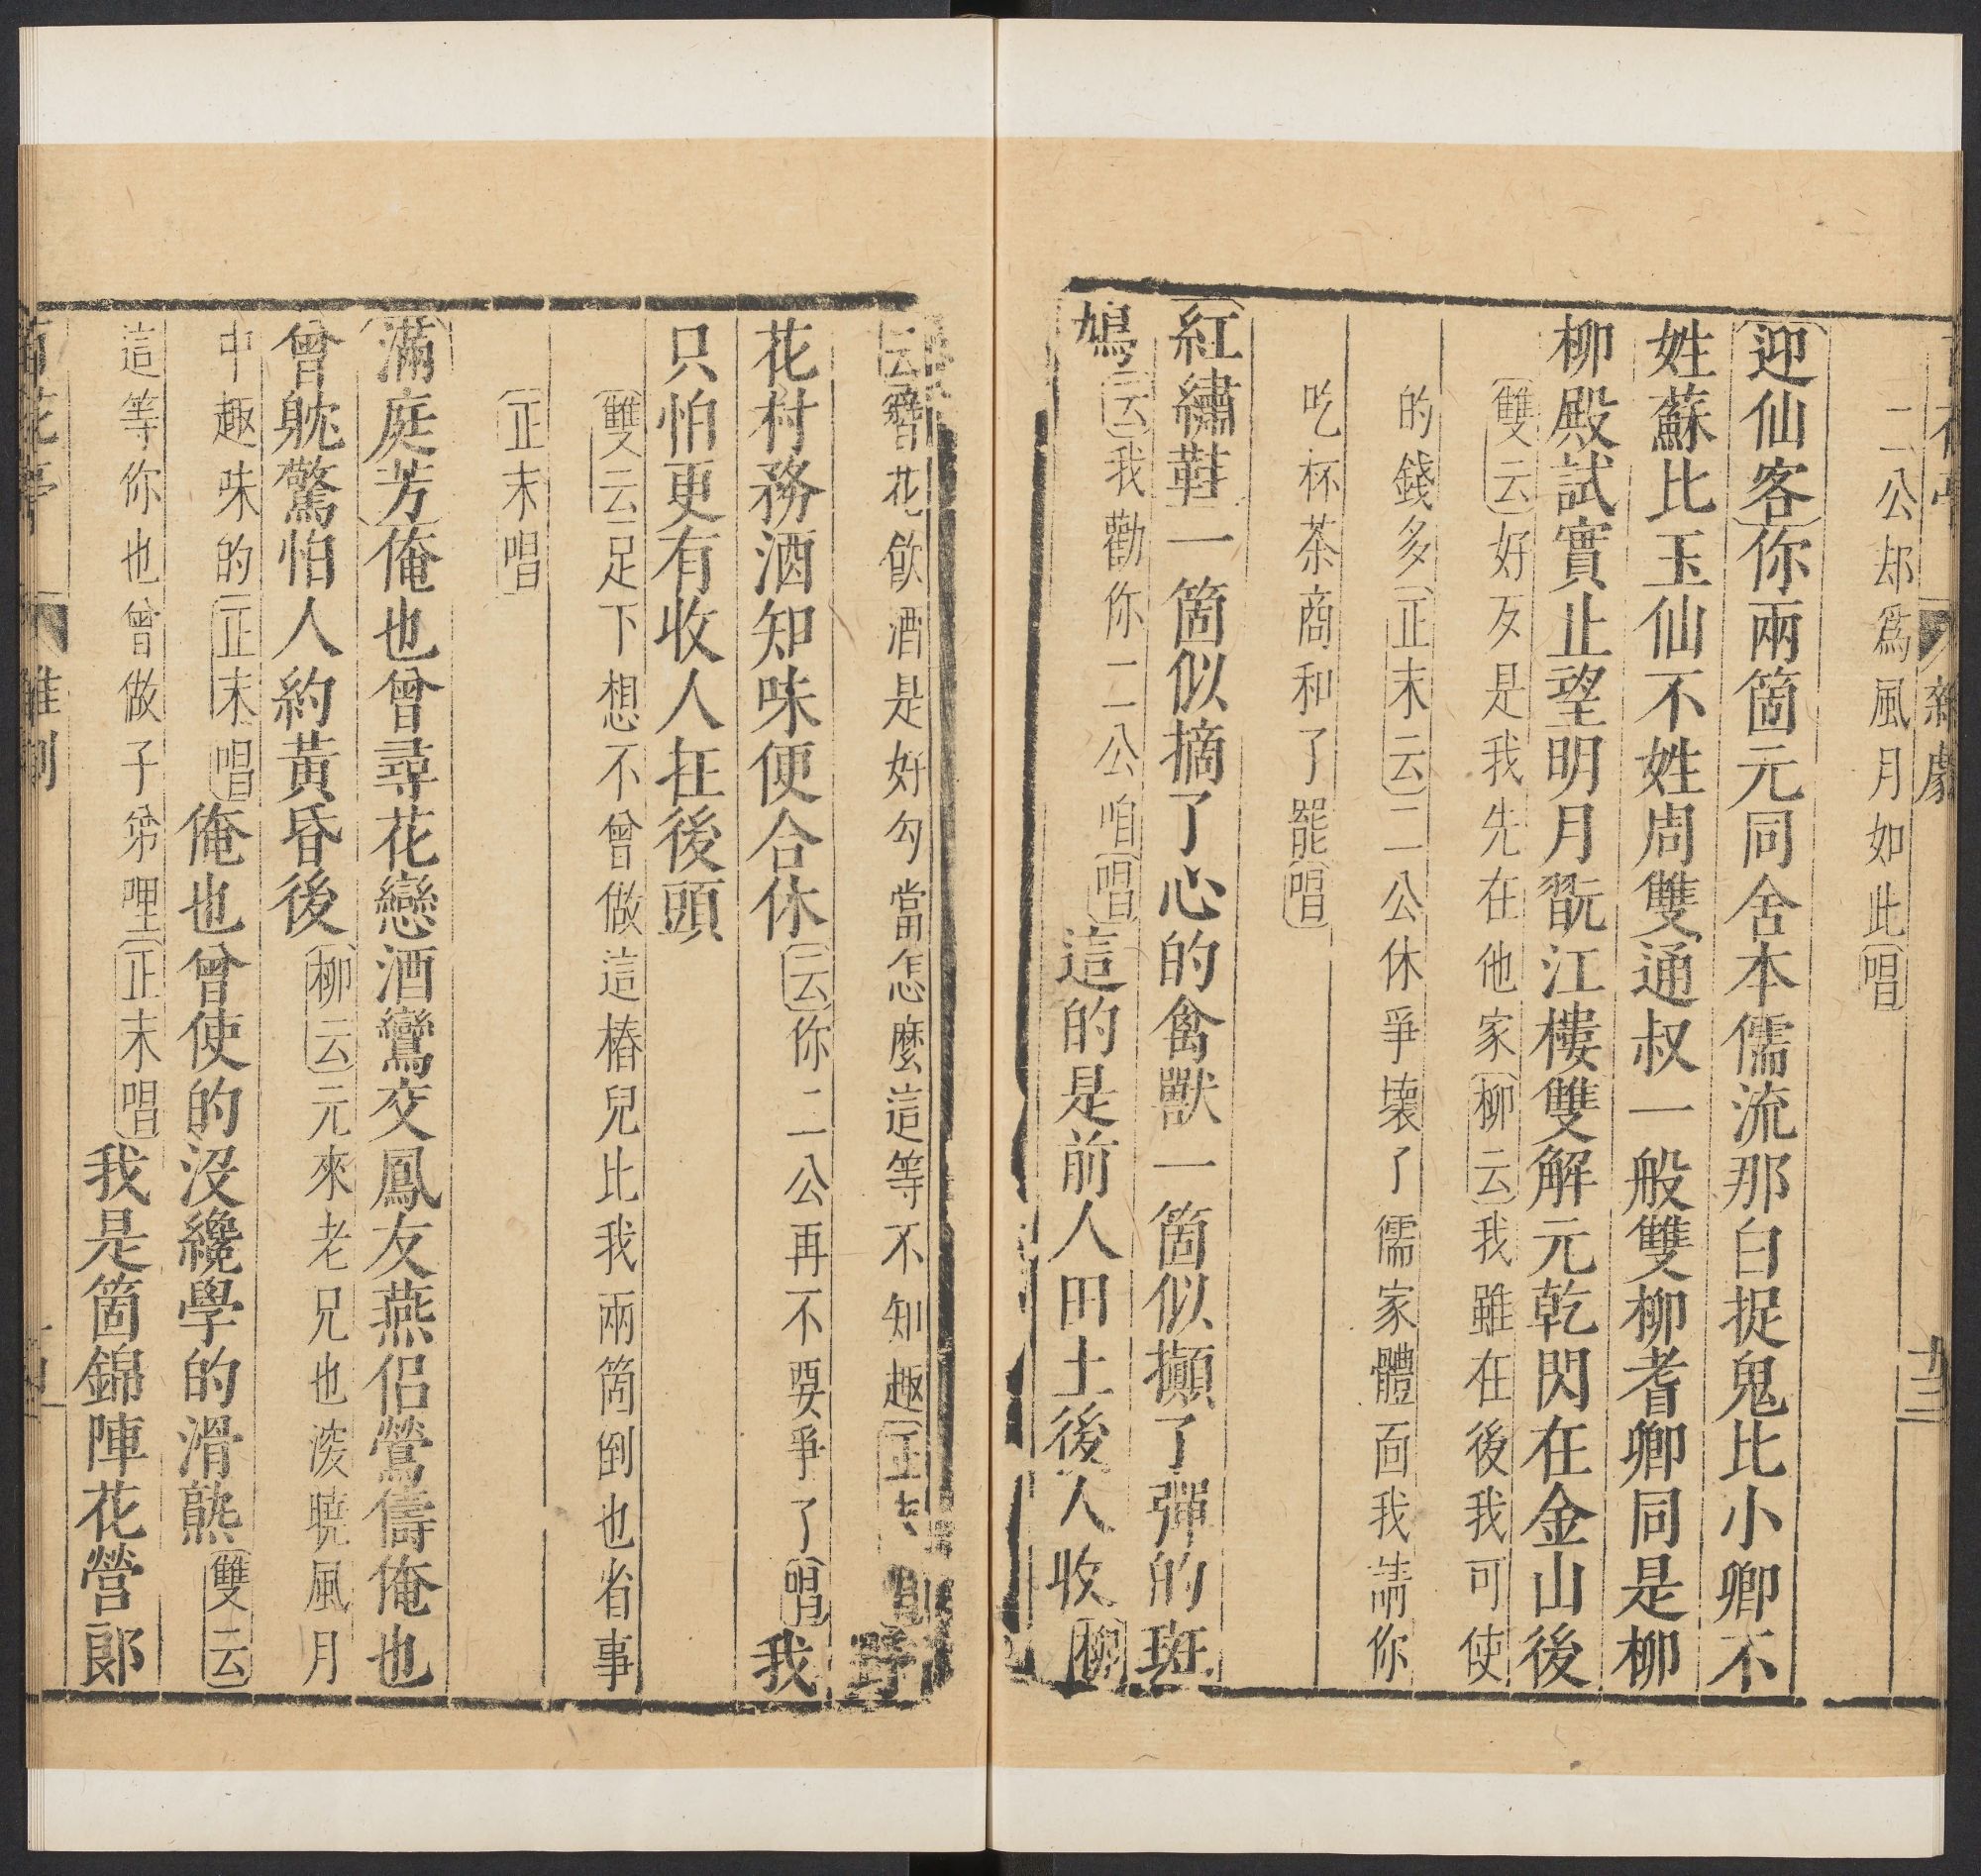 二公却爲風月如此唱
迎仙客你兩箇元同舍本儒流那白捉鬼比小卿不
姓蘇比玉仙不姓周雙通叔一般雙柳耆卿同是柳
柳殿試實止望明月翫江樓雙解元乾閃在金山後
雙云好歹是我先在他家柳云我雖在後我可使
的錢多正末云二公休爭壞了儒家體面我請你
吃杯茶商和了罷唱
紅繡鞋一箇似摘了心的禽獸一箇似攧了彈的斑
鳩云我勸你二公咱唱這的是前人田土後人收柳
云簪花飮酒是好勾當怎麼這等不知趣正末唱野
花村務酒知味便合休云你二公再不要爭了唱我
只怕更有收人在後頭
雙云足下想不曾做這樁兒比我兩箇倒也省事
正末唱
滿庭芳俺也曾尋花戀酒鸞交鳳友燕侶鶯儔俺也
曾躭驚怕人約黃昏後柳云元來老兄也深曉風月
中趣味的正末唱俺也曾使的沒纔學的滑熟雙云
這等你也曾做子弟哩正末唱我是箇錦陣花營郞
雜劇